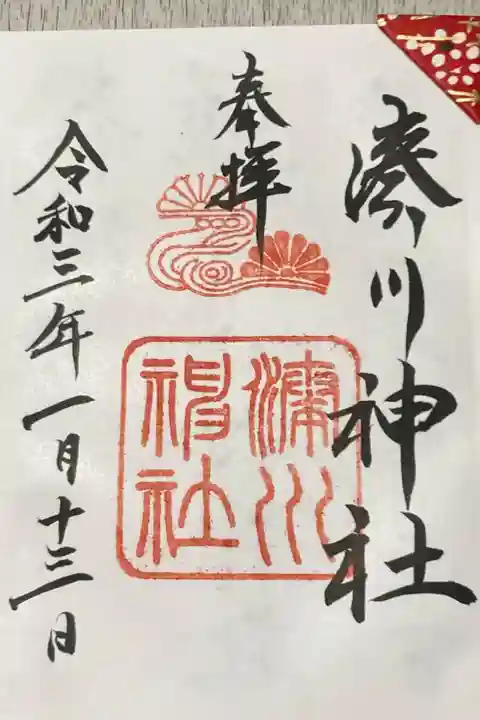 湊川神社
奉拝
湊川神社
令和三年一月十三日